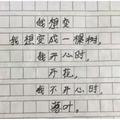 我想变
我想变成一棵树。
我开心时，
开花，
我不开心时，
落叶。